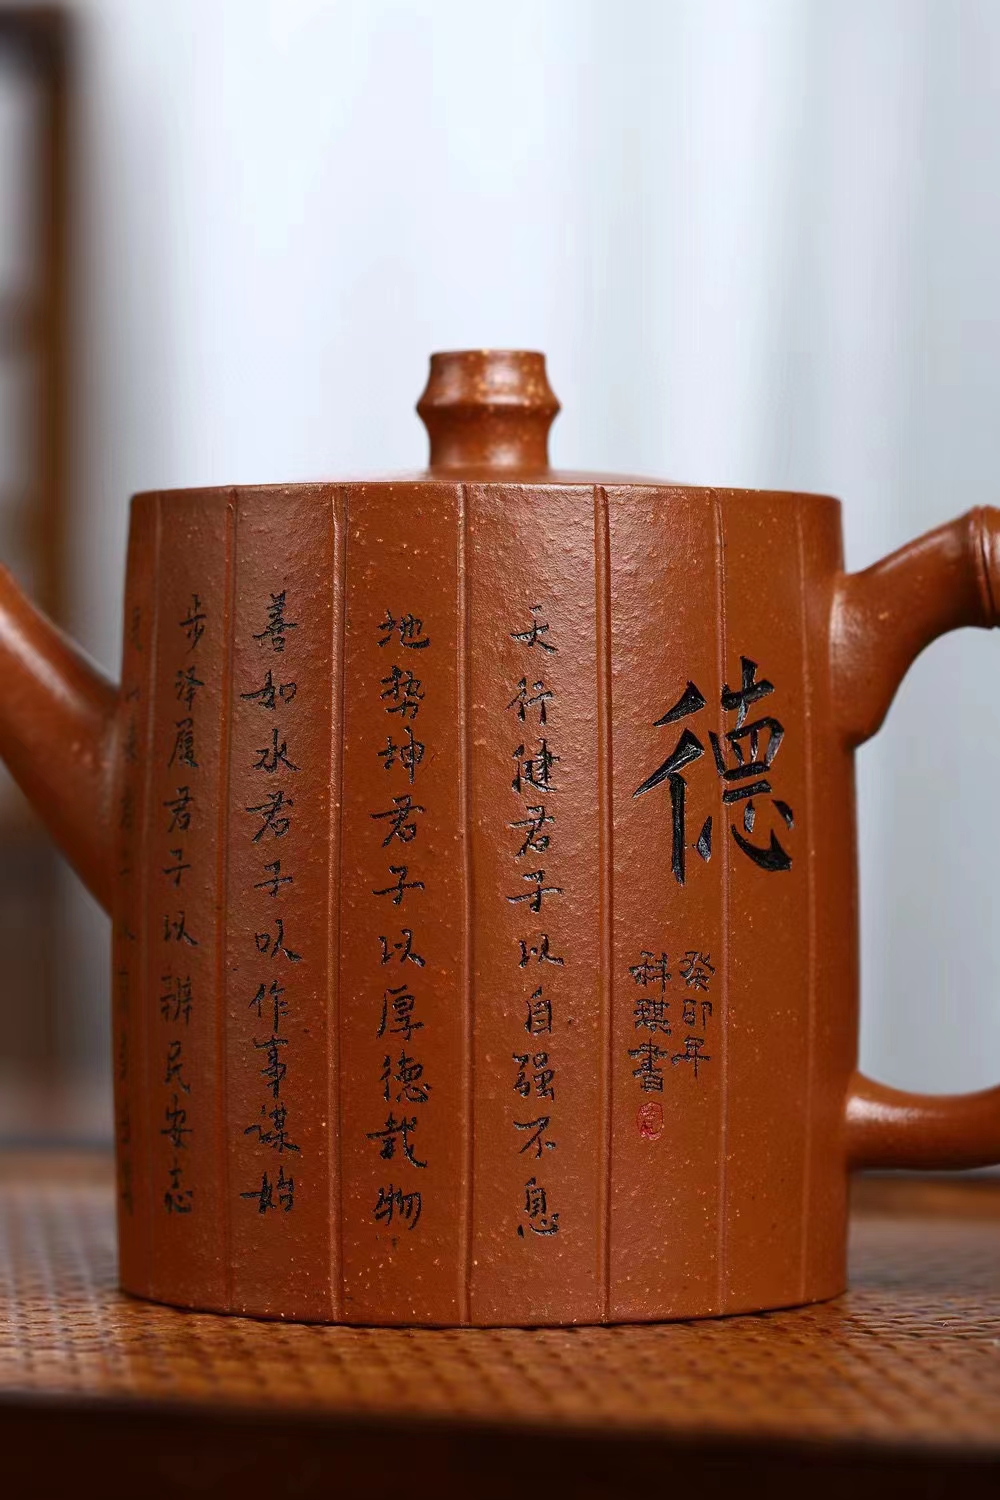 德
癸卯年
科琪書
天行健君子以自强不息
地势坤君子以厚德载物
善如水君子以作事谋始
步泽履君子以辨民安志